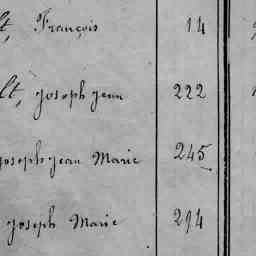 lt, François 14
lt, joseph jean 222
joseph jean Marie 245
joseph Marie 294